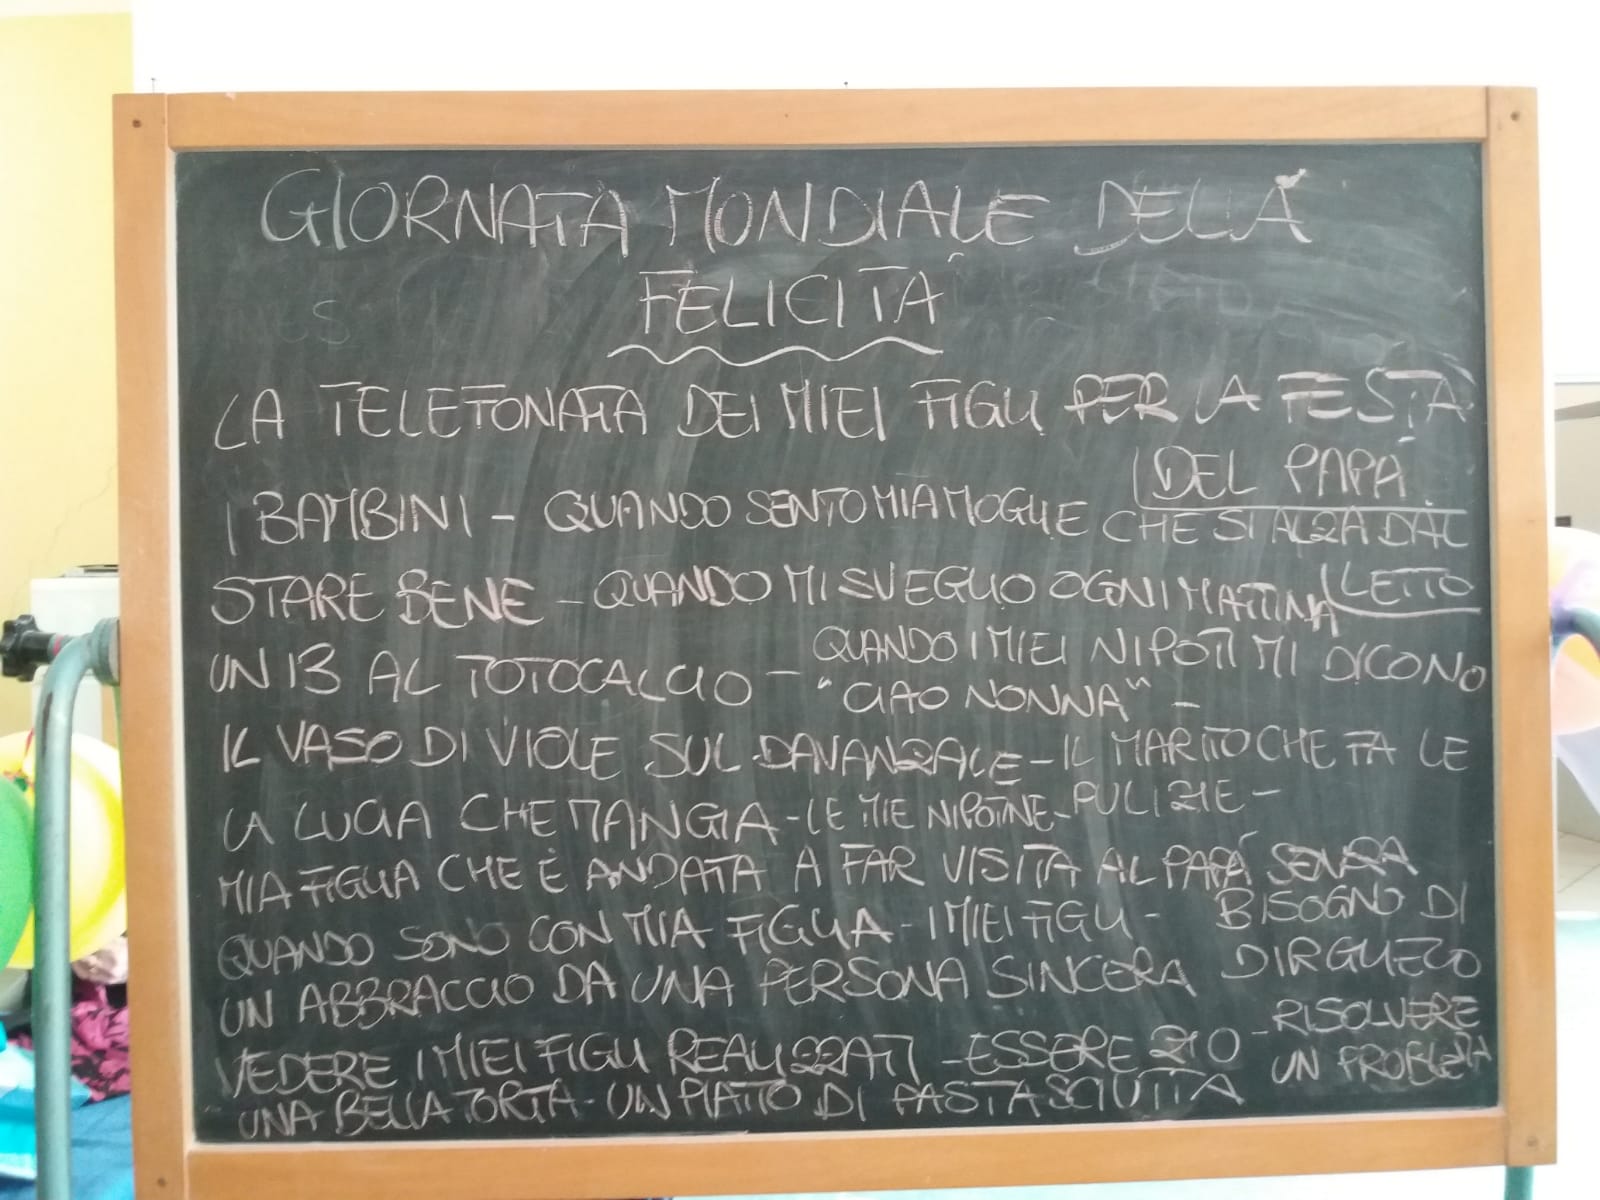 GIORNATA MONDIALE DELLA
FELICITÀ
LA TELEFONATA DEI MIEI FIGLI PER LA FESTA
DEL PAPÀ
I BAMBINI - QUANDO SENTO MIA MOGLIE CHE SI ALZA DAL
LETTO
STARE BENE - QUANDO MI SVEGLIO OGNI MATTINA
UN 13 AL TOTOCALCIO - QUANDO I MIEI NIPOTI MI DICONO
"CIAO NONNA" -
IL VASO DI VIOLE SUL DAVANZALE - IL MARITO CHE FA LE
PULIZIE -
LA LUCIA CHE MANGIA - LE MIE NIPOTINE -
MIA FIGLIA CHE È ANDATA A FAR VISITA AL PAPÀ SENZA
BISOGNO DI
DIRGLIELO
QUANDO SONO CON MIA FIGLIA - I MIEI FIGLI -
UN ABBRACCIO DA UNA PERSONA SINCERA
VEDERE I MIEI FIGLI REALIZZATI - ESSERE ZIO - RISOLVERE
UN PROBLEMA
UNA BELLA TORTA - UN PIATTO DI PASTASCIUTTA